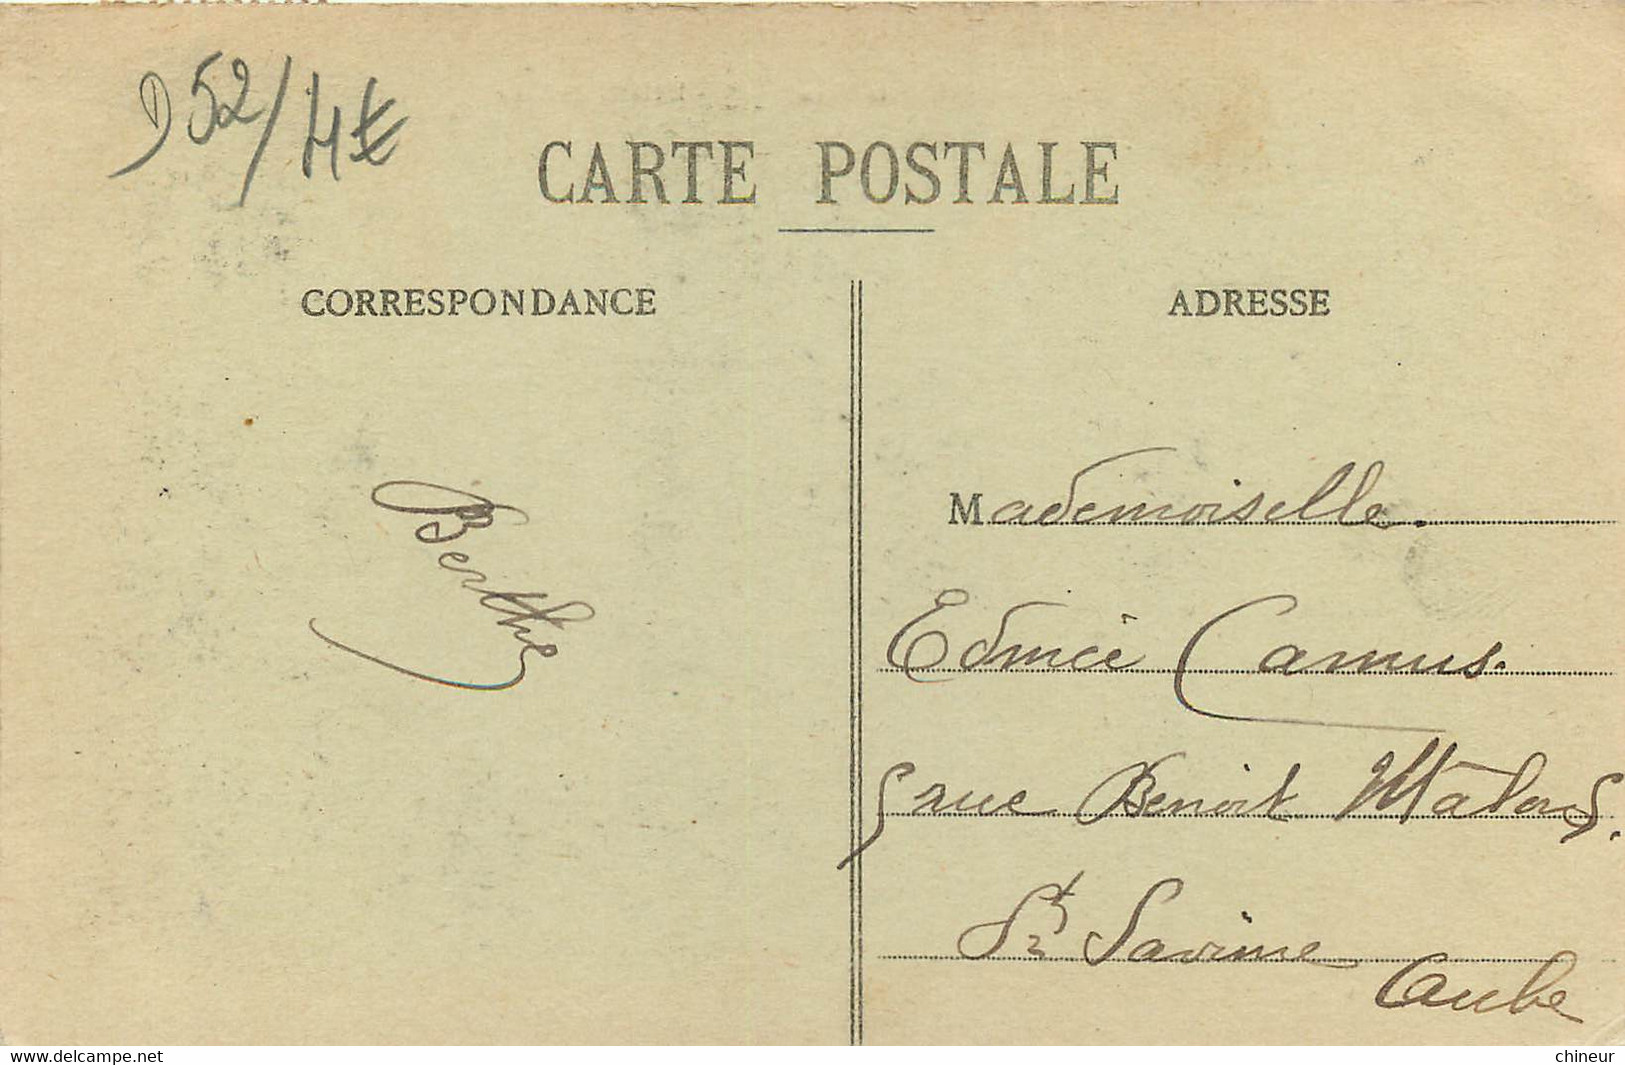 D52/4€
CARTE POSTALE
CORRESPONDANCE
ADRESSE
Berthe
Mademoiselle.
Edmée Camus.
rue Benoit Malon
Ste Savine
Aube
www.delcampe.net
chineur